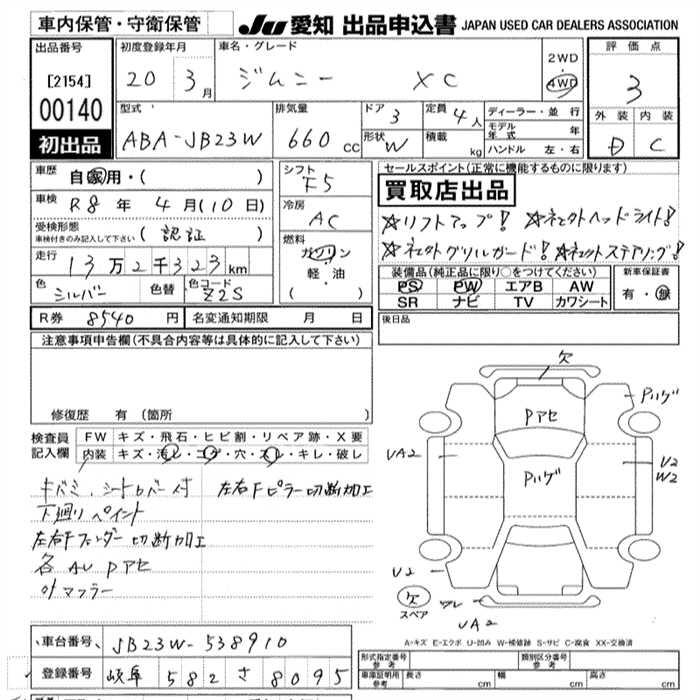 車内保管・守衛保管 JU 愛知 出品申込書 JAPAN USED CAR DEALERS ASSOCIATION
出品番号 初度登録年月 車名・グレード 評価点
[2154] 20 3月 ジムニー XC 2WD 4WD 3
00140 型式 排気量 ドア 3 定員 4人 ディーラー・並行 外装 内装
初出品 ABA-JB23W 660cc 形状 W 積載 kg モデル年式 年 D C
ハンドル 左・右
車歴 自家用・( ) シフト F5 セールスポイント(正常に機能するものに限ります)
車検 R8年 4月(10日) 冷房 AC 買取店出品
受検形態 車検付きのみ記入して下さい (認証) 燃料 ガソリン ☆リフトアップ! ☆社外ヘッドライト!
走行 13万2千323km 軽・油 ☆社外グリルガード! ☆社外ステアリング!
色 シルバー 色替 色コード Z2S ( ) 装備品(純正品に限り○をつけてください) 新車保証書
PS PW エアB AW 有・無
SR ナビ TV カワシート
R券 8540円 名変通知期限 月 日 後日品
注意事項申告欄(不具合内容等は具体的に記入して下さい)
修復歴 有(箇所 )
検査員記入欄 FW キズ・飛石・ヒビ割・リペア跡・X要
内装 キズ・汚レ・コゲ・穴・スレ・キレ・破レ
キバミ、シートカバー付 左右Fピラー切断加工
下廻りペイント
左右Fフェンダー切断加工
各AW Pアセ
社マフラー
欠
Pハゲ
Pアセ
UA2
Pハゲ
U2
W2
U2
欠
スペア
ワレ
UA2
A-キズ E-エクボ U-凹み W-補修跡 S-サビ C-腐食 XX-交換済
車台番号 JB23W-538910 形式指定番号 参考 類別区分番号 参考
登録番号 岐阜 582 さ 8095 車庫証明用参考 長さ cm 幅 cm 高さ cm